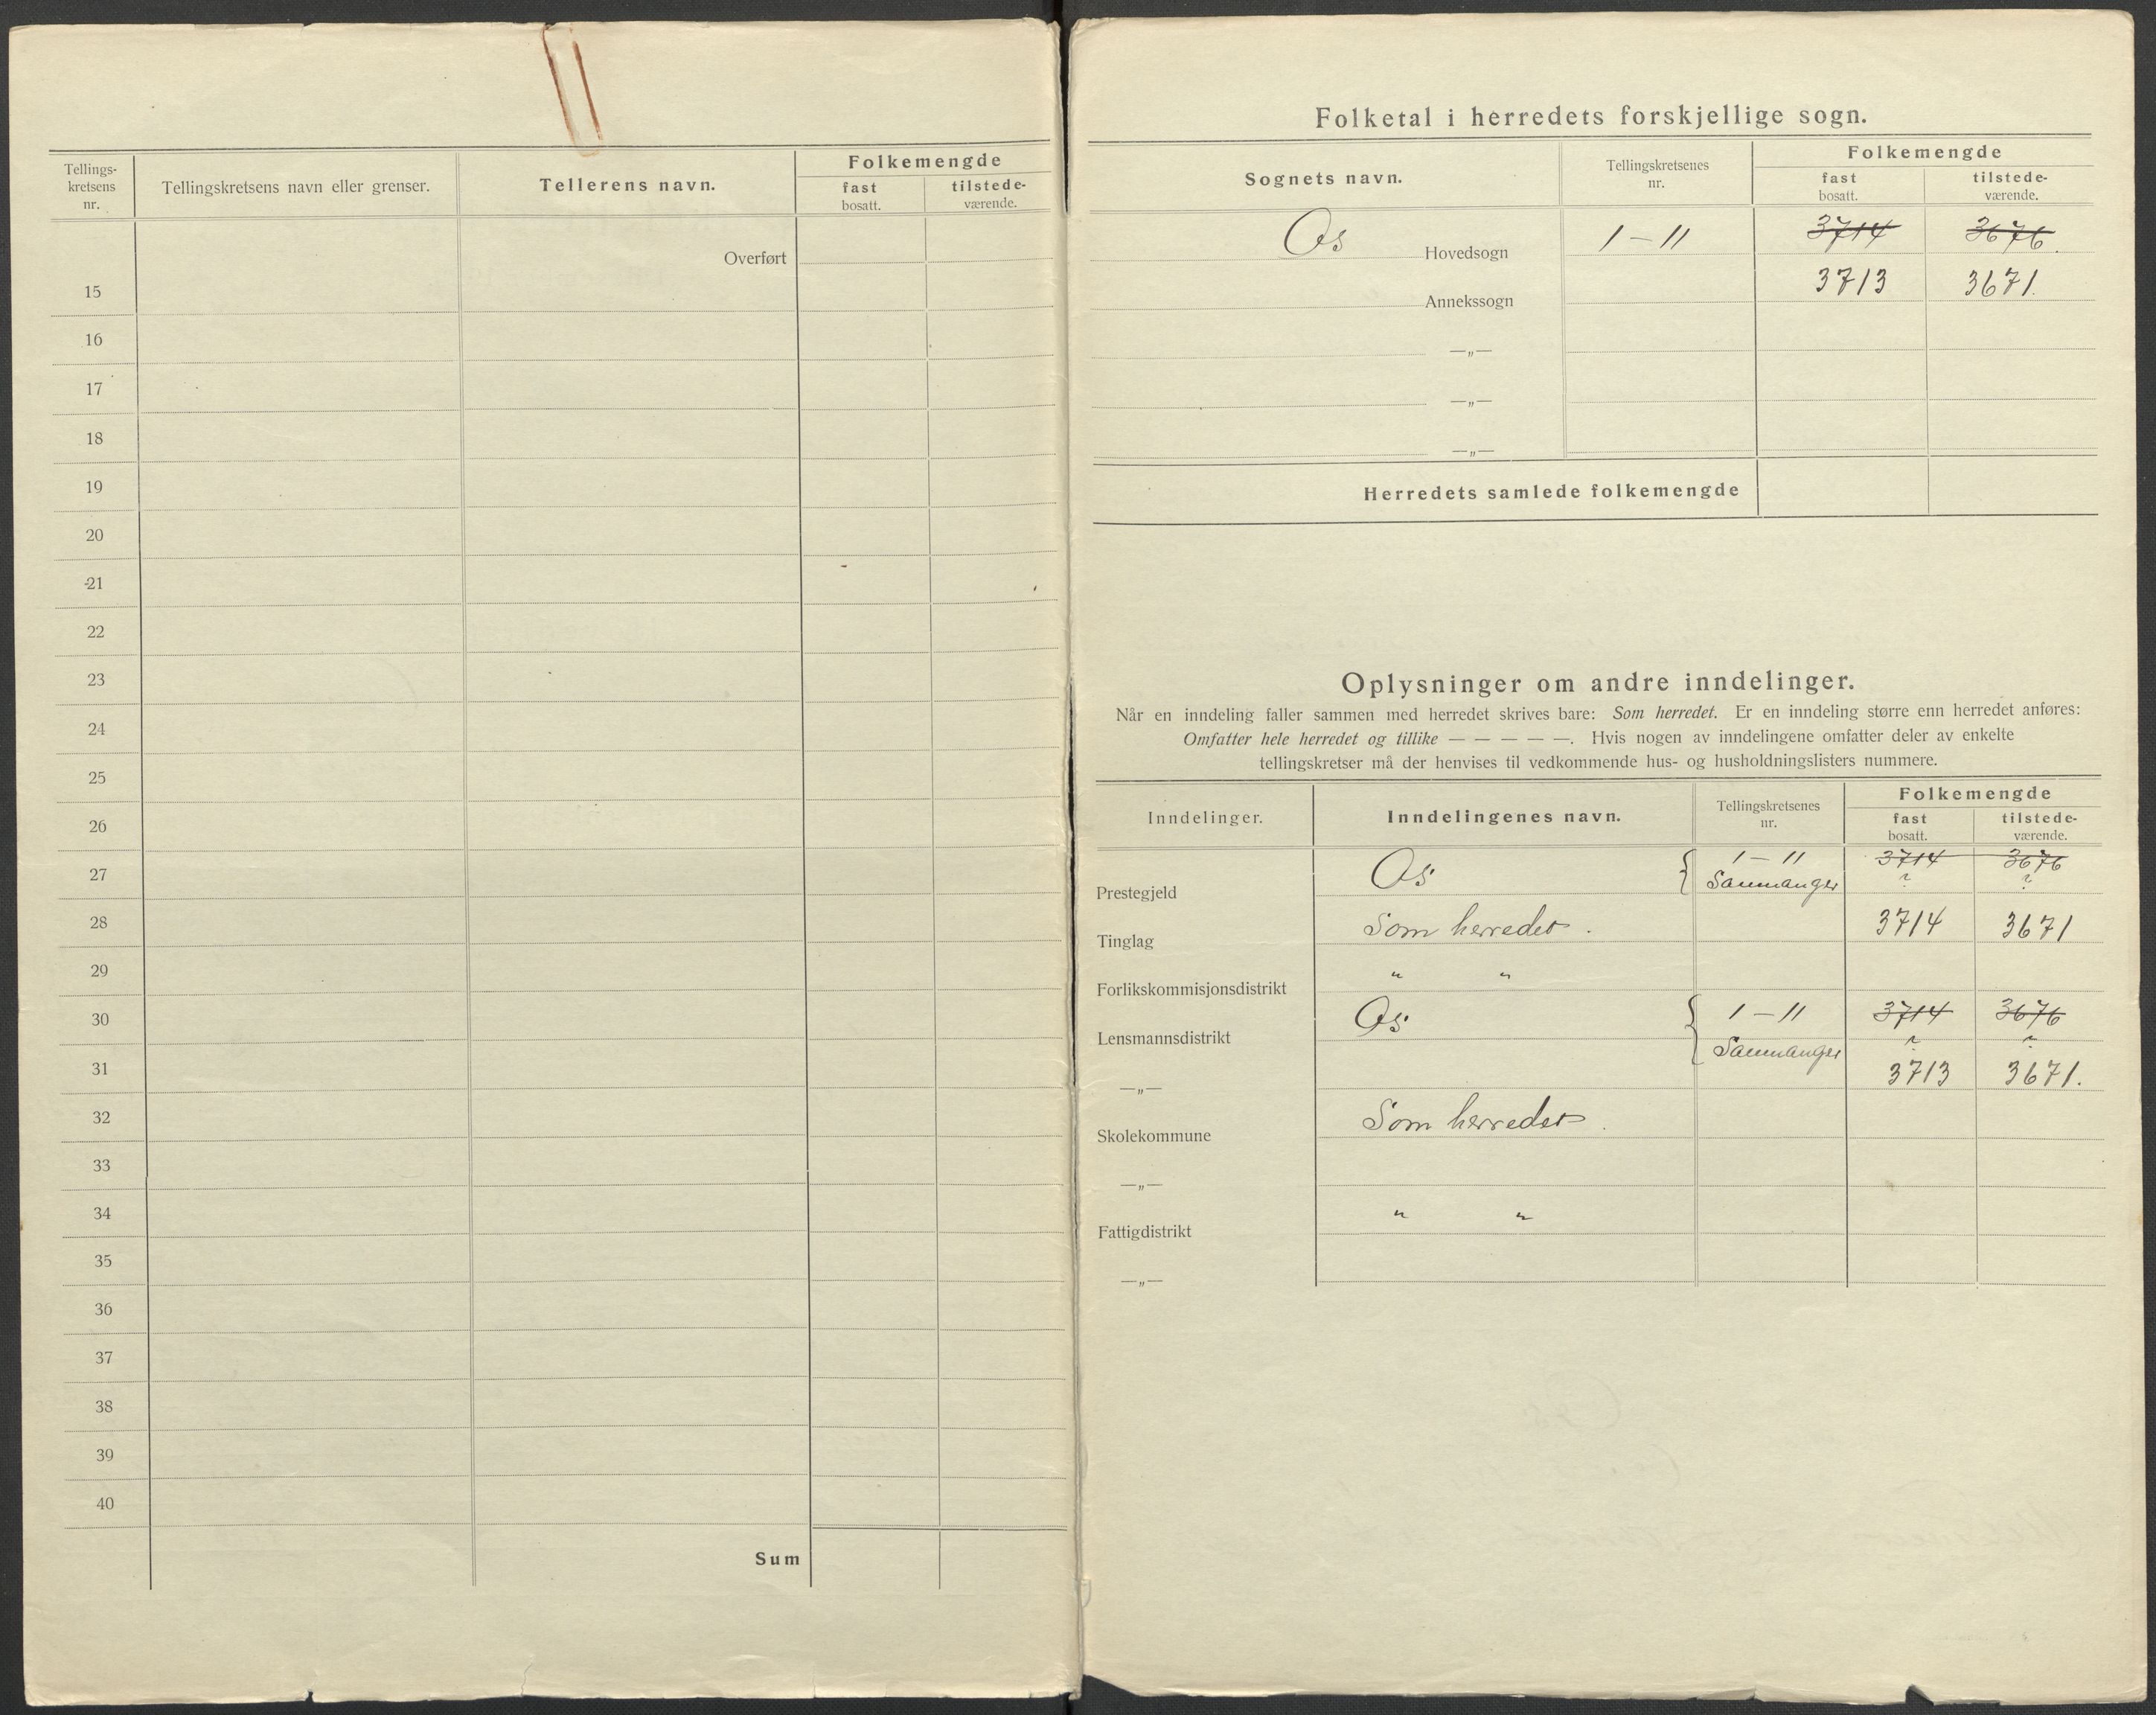 Tellings-
kretsens
nr.
Tellingskretsens navn eller grenser.
Tellerens navn.
Folkemengde
fast
bosatt.
tilstede-
værende.
Overført
15
16
17
18
19
20
21
22
23
24
25
26
27
28
29
30
31
32
33
34
35
36
37
38
39
40
Sum
Folketal i herredets forskjellige sogn.
Sognets navn.
Tellingskretsenes
nr.
Folkemengde
fast
bosatt.
tilstede-
værende.
Os Hovedsogn 1 – 11 3714 3676.
Annekssogn 3713 3671.
—„—
—„—
—„—
Herredets samlede folkemengde
Oplysninger om andre inndelinger.
Når en inndeling faller sammen med herredet skrives bare: Som herredet. Er en inndeling større enn herredet anføres:
Omfatter hele herredet og tillike — — — — —. Hvis nogen av inndelingene omfatter deler av enkelte
tellingskretser må der henvises til vedkommende hus- og husholdningslisters nummere.
Inndelinger.
Inndelingenes navn.
Tellingskretsenes
nr.
Folkemengde
fast
bosatt.
tilstede-
værende.
Prestegjeld Os { 1 – 11 3714 3676
Samnanger ? ?
Tinglag Som herredet. 3714 3671
Forlikskommisjonsdistrikt " "
Lensmannsdistrikt Os { 1 – 11 3714 3676
Samnanger ? ?
—„— 3713 3671.
Skolekommune Som herredet.
—„—
Fattigdistrikt " "
—„—